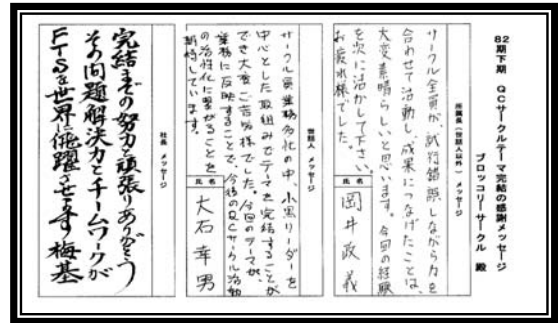 82期下期 QCサークルテーマ完結の感謝メッセージ
ブロッコリーサークル 殿
所属長(世話人以外) メッセージ
サークル全員が、試行錯誤しながら力を
合わせて活動し、成果につなげたことは、
大変素晴らしいと思います。今回の経験
を次に活かして下さい。
お疲れ様でした。
氏名
岡井政義
世話人 メッセージ
サークル員業務多忙の中、小黒リーダーを
中心とした取組みでテーマを完結することが
でき大変ご苦労様でした。今回のテーマが、
業務に反映することで、今後のQCサークル活動
の活性化に繋がることを
期待しています。
氏名
大石幸男
社長 メッセージ
完結までの努力と頑張りありがとう
その問題解決力とチームワークが
FTSを世界に飛躍させます 梅基